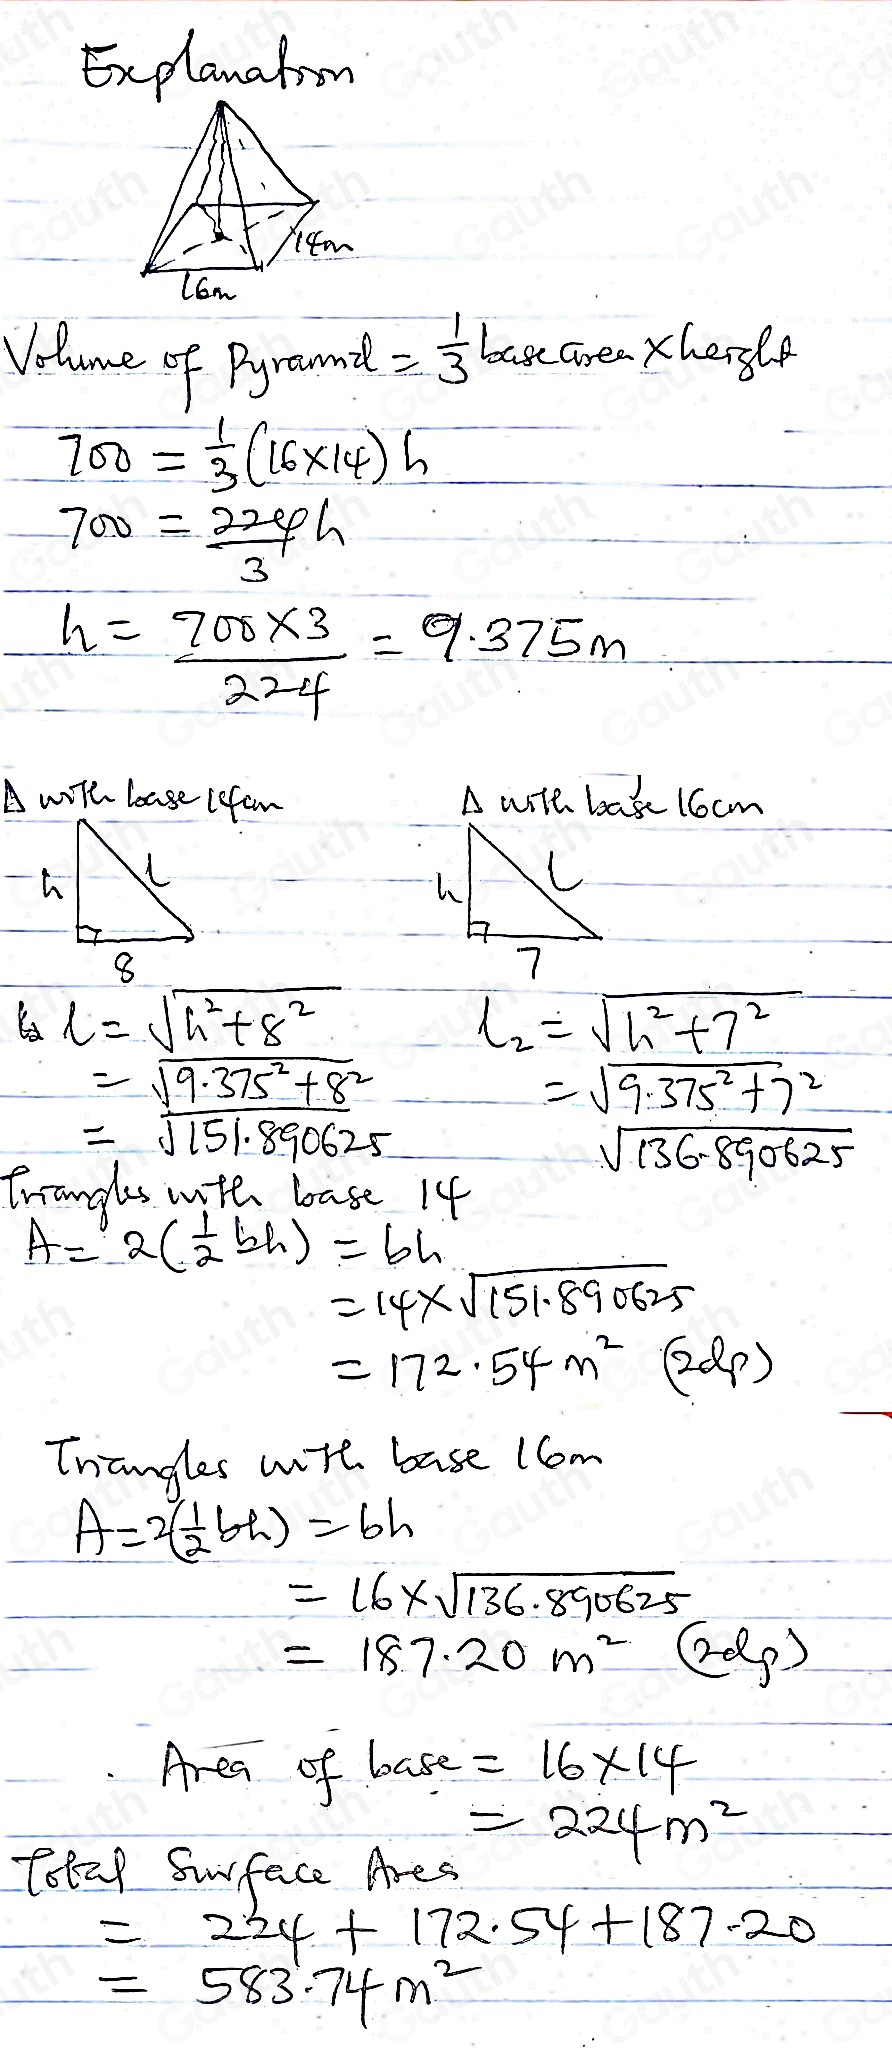 Explanation
14m
16m
Volume of Pyramid = 1/3 base area × height
700 = 1/3 (16×14) h
700 = 224h/3
h = 700×3/224 = 9.375m
Δ with base 14cm
Δ with base 16cm
h l
8
h l
7
l = √(h²+8²)
= √(9.375²+8²)
= √151.890625
l₂ = √(h²+7²)
= √(9.375²+7²)
√136.890625
Triangles with base 14
A = 2(1/2 bh) = bh
= 14×√151.890625
= 172.54 m² (2dp)
Triangles with base 16m
A = 2(1/2 bh) = bh
= 16×√136.890625
= 187.20 m² (2dp)
Area of base = 16×14
= 224m²
Total Surface Area
= 224 + 172.54 + 187.20
= 583.74 m²